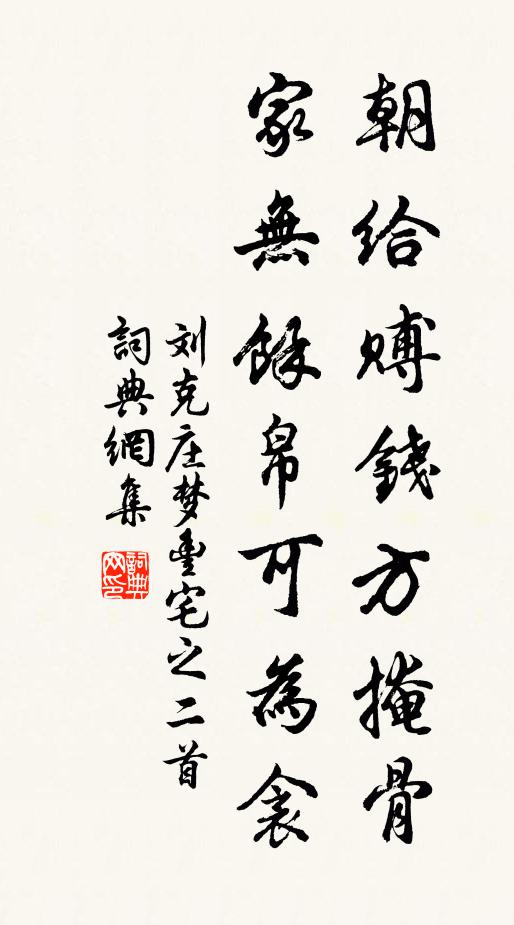 朝給賻錢方掩骨
家無餘帛可為衾
刘克庄梦豐宅之二首
詞典網集
詞典网印